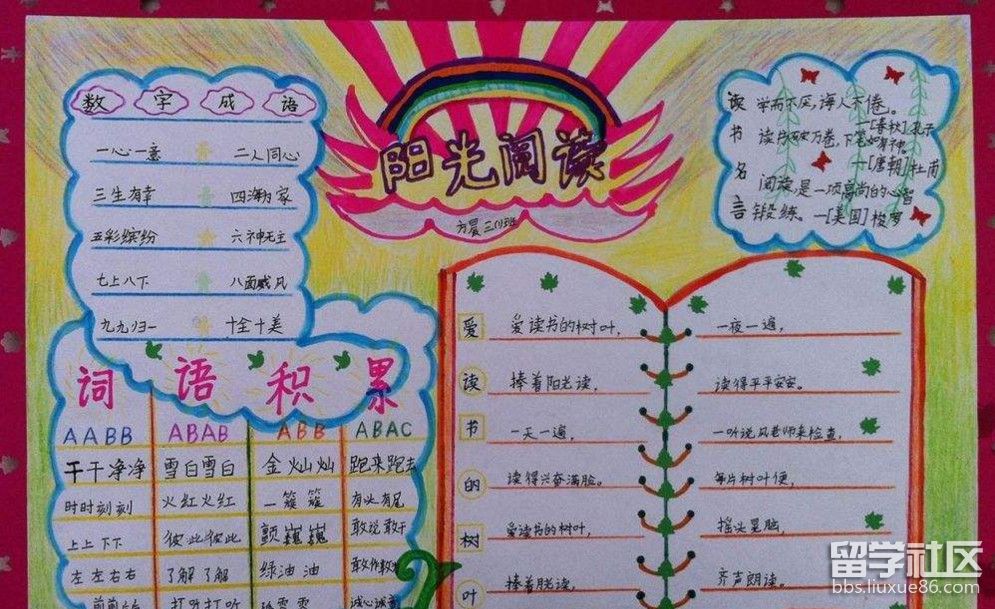 阳光阅读
方晨 三(1)班
数字成语
一心一意 二人同心
三生有幸 四海为家
五彩缤纷 六神无主
七上八下 八面威风
九九归一 十全十美
读书名言
学而不厌,诲人不倦。
—[春秋]孔子
读书破万卷,下笔如有神。
—[唐朝]杜甫
阅读,是一项高尚的心智
锻练。—[美国]梭罗
词语积累
AABB ABAB ABB ABAC
干干净净 雪白雪白 金灿灿 跑来跑去
时时刻刻 火红火红 一簇簇 有头有尾
上上下下 彼此彼此 颤巍巍 敢说敢干
左左右右 了解了解 绿油油
打听打听 诚心诚意
爱读书的树叶
爱读书的树叶,
捧着阳光读,
一天一遍,
读得兴奋满脸。
爱读书的树叶,
捧着月光读,
一夜一遍,
读得平平安安。
一听说风老师来检查,
每片树叶便,
摇头晃脑,
齐声朗读。
留学社区
bbs.liuxue86.com